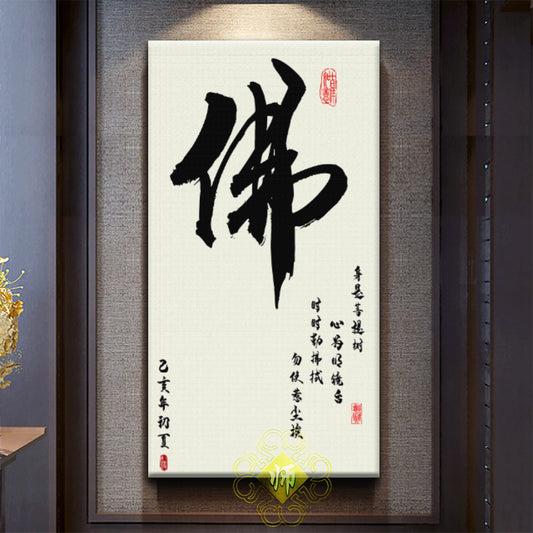 佛
身是菩提树
心为明镜台
时时勤拂拭
勿使惹尘埃
乙亥年初夏
师